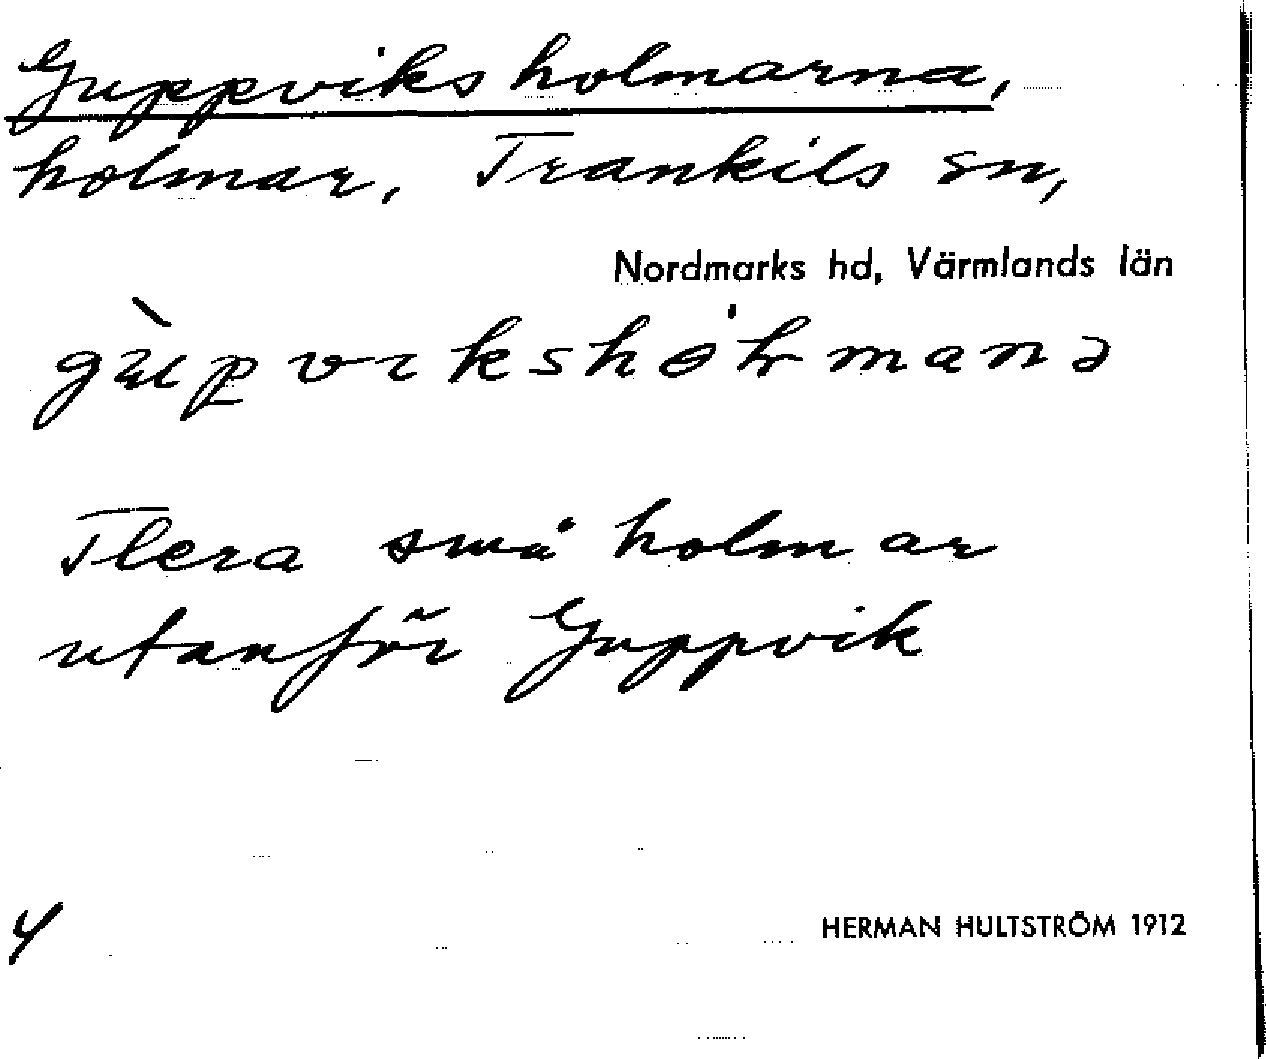 Guppviksholmarna,
holmar, Trankils sn,
Nordmarks hd, Värmlands län
Flera små holmar
utanför Guppvik
4
HERMAN HULTSTRÖM 1912